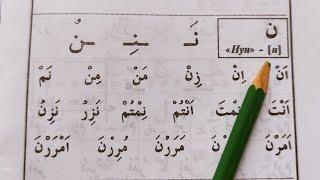 ن نَـ ـنِـ ـنُ
«Нун» - [н]
اَنْ اِنْ زِنْ مَنْ مِنْ نَمْ
اَنْتَ نْتَ اَنْتُمْ نِمْتُمْ نَزَرُ نَزِنُ
اَمَرْنَ نَ مَرَرْنَ مُرِرْنَ اَمْرَرْنَ